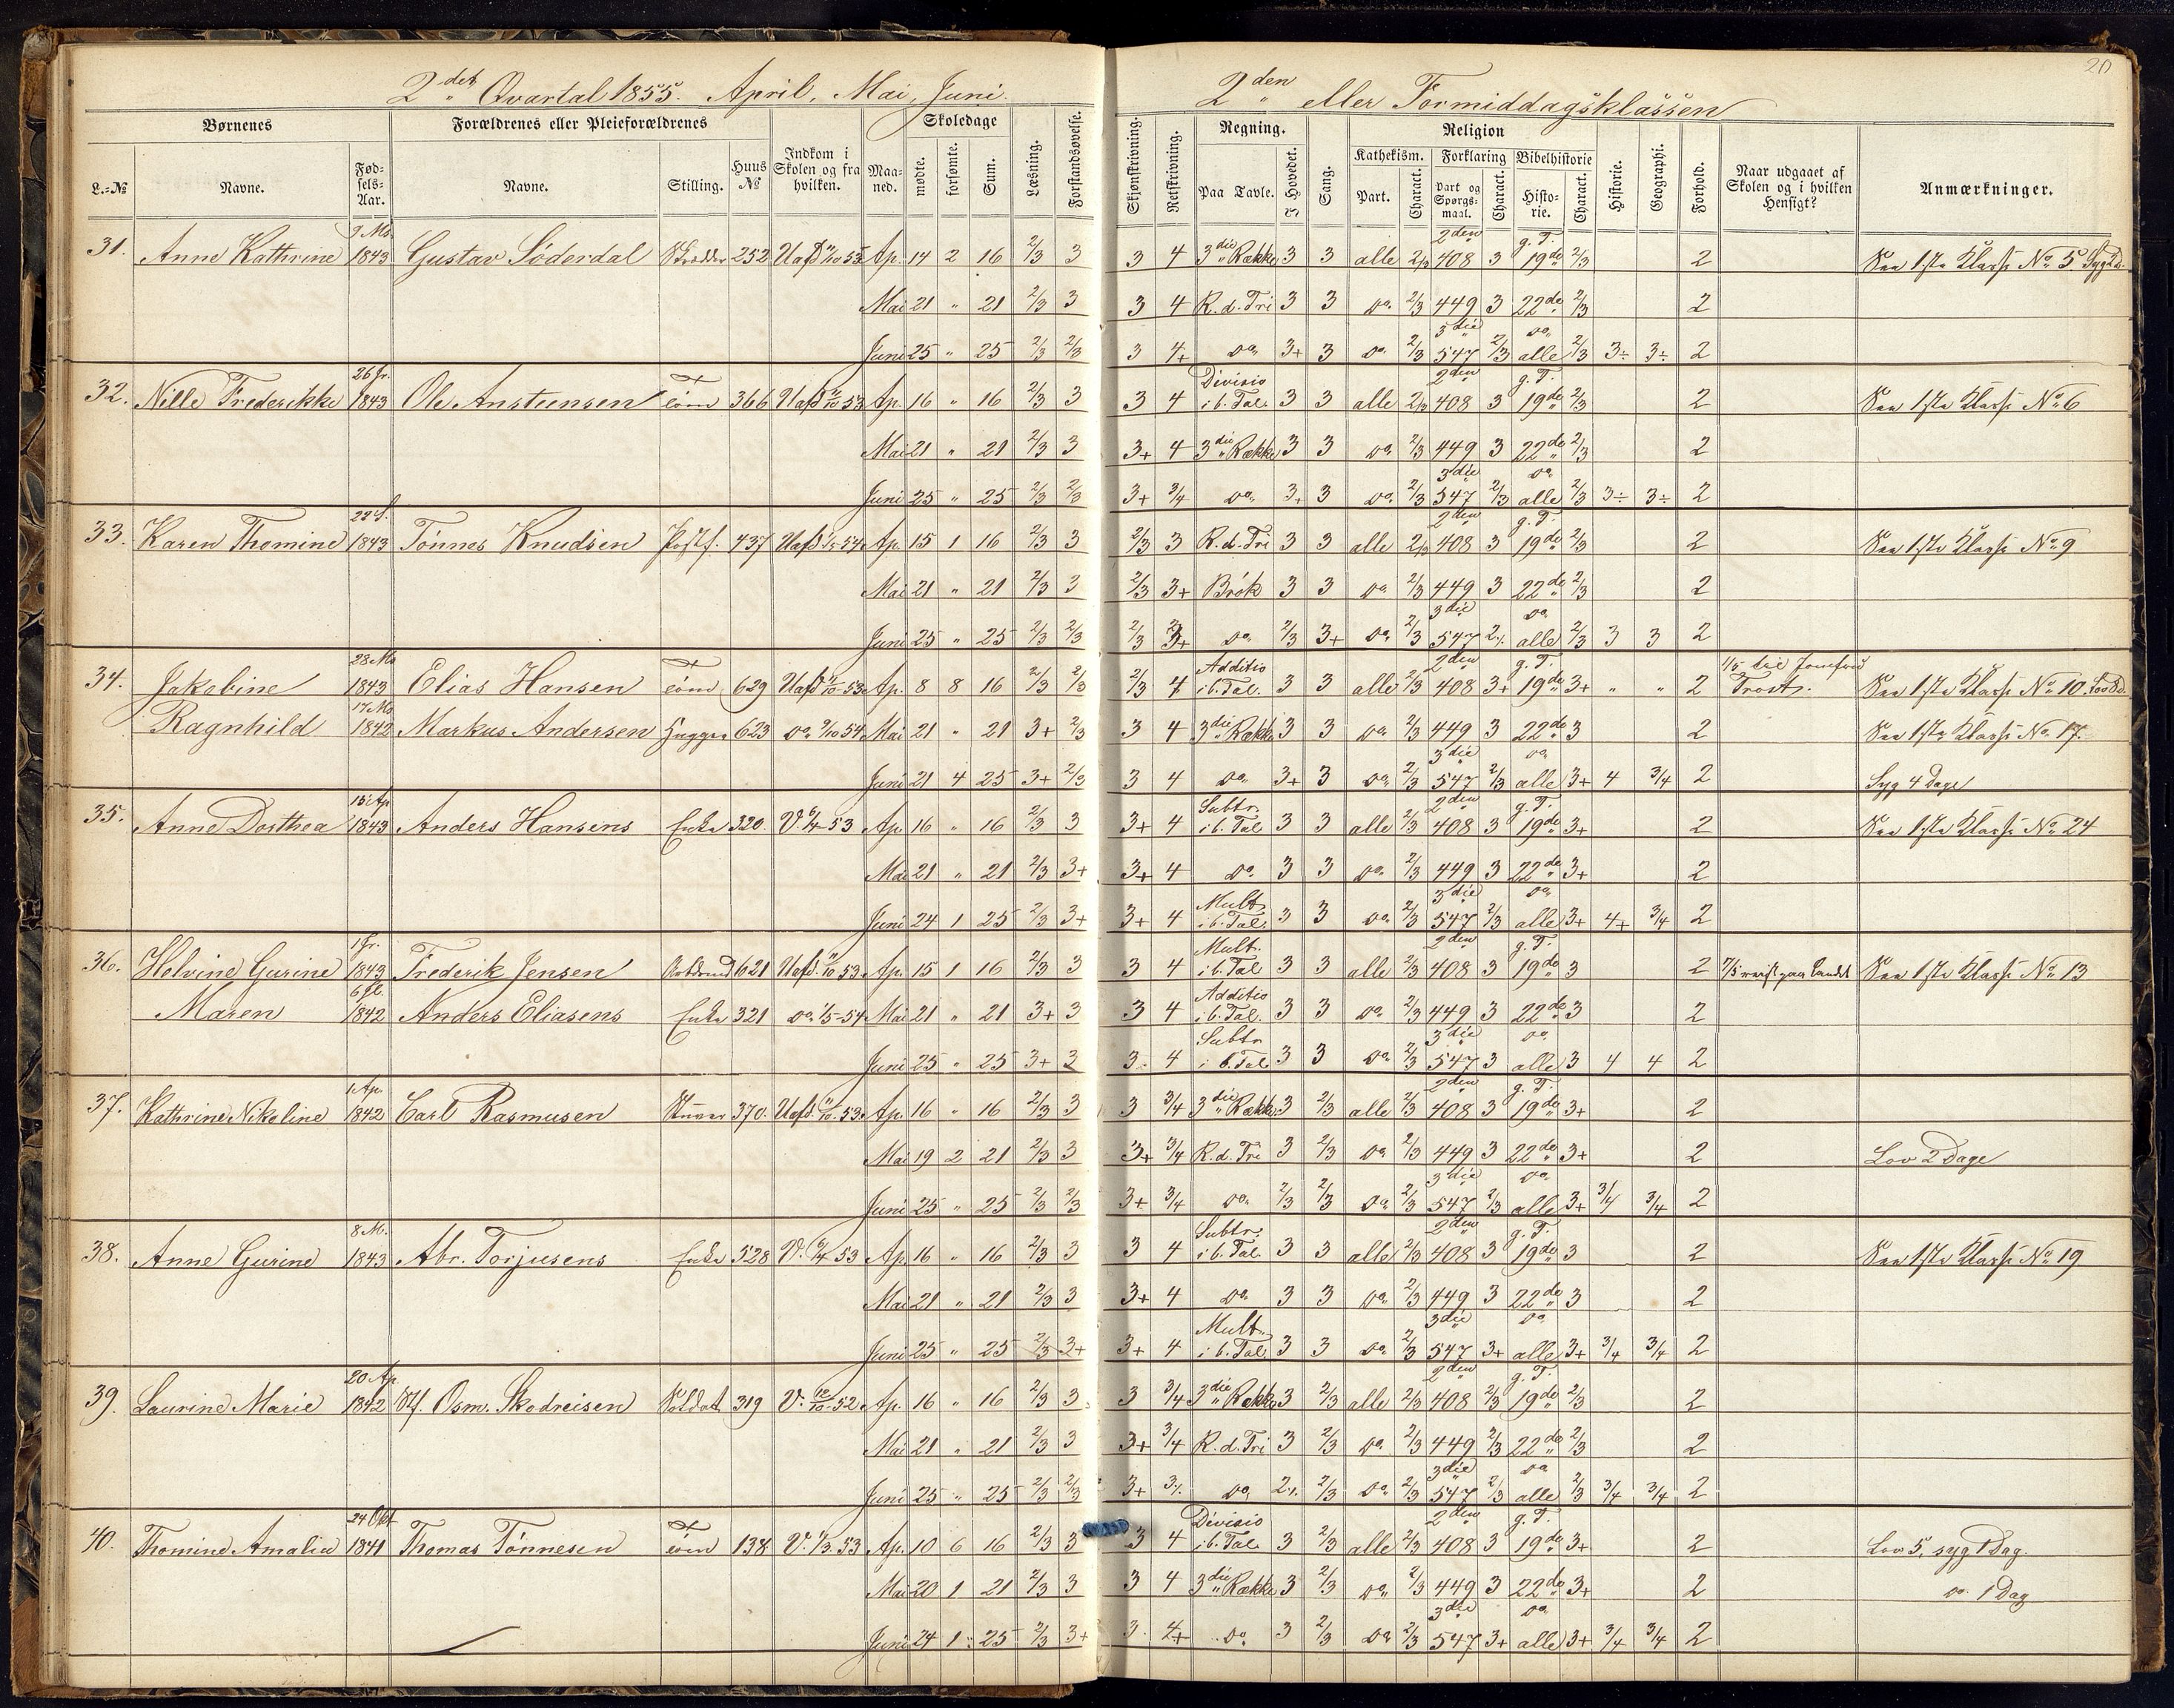 20
2det Qvartal 1855. April, Mai, Juni.
2den eller Formiddagsklassen
Børnenes
Forældrenes eller Pleieforældrenes
Indkom i Skolen og fra hvilken.
Maaned.
Skoledage
Læsning.
Forstandsøvelse.
Skjønskrivning.
Retskrivning.
Regning.
Sang.
Religion
Historie.
Geographi.
Forhold.
Naar udgaaet af Skolen og i hvilken Hensigt?
Anmærkninger.
L.-No Navne. Fødsels-Aar. Navne. Stilling. Huus No mødte. forsømte. Sum. Paa Tavle. I Hovedet. Kathekism. Part. Charact. Forklaring Part og Spørgsmaal. Charact. Bibelhistorie Historie. Charact.
9 Ms. 2den g. T.
31. Anne Kathrine 1843 Gustav Söderdal 252 Ap. 14 2 16 2/3 3 3 4 3die Række 3 3 alle 2/3 408 3 19de 2/3 2 1ste Klasse No 5
Mai 21 " 21 2/3 3 3 4 R. d. Tri 3 3 do 2/3 449 3 22de 2/3 2
3die do
Juni 25 " 25 2/3 2/3 3 4+ do 3+ 3 do 2/3 547 2/3 alle 2/3 3÷ 3÷ 2
Divisio 2den g. T.
32. Nille Frederikke 1843 Ole Anstensen 366 Ap. 16 " 16 2/3 3 3 4 i b. Tal. 3 3 alle 2/3 408 3 19de 2/3 2 1ste Klasse No 6
Mai 21 " 21 2/3 3 3+ 4 3die Række 3 3 do 2/3 449 3 22de 2/3 2
3die do
Juni 25 " 25 2/3 2/3 3+ 3/4 do 3+ 3 do 2/3 547 2/3 alle 2/3 3÷ 3÷ 2
2den g. T.
33. Karen Thomine 1843 Tönnes Knudsen 437 Ap. 15 1 16 2/3 3 2/3 3 R. d. Tri 3 3 alle 2/3 408 3 19de 2/3 2 1ste Klasse No 9
Mai 21 " 21 2/3 3 2/3 3+ Brök 3 3 do 2/3 449 3 22de 2/3 2
3die do
Juni 25 " 25 2/3 2/3 2/3 3+ do 2/3 3+ do 2/3 547 alle 2/3 3 3 2
28 Ms Additio 2den g. T.
34. Jakobine 1843 Elias Hansen 629 Ap. 8 8 16 2/3 2/3 2/3 4 i b. Tal. 3 3 alle 2/3 408 3+ 19de 3+ " " 2 1ste Klasse No 10.
17 Ms
Ragnhild 1842 Markus Andersen 623 do 54 Mai 21 " 21 3+ 2/3 3 4 3die Række 3 3 do 2/3 449 3 22de 3 2 1ste Klasse No 17.
3die do
Juni 21 4 25 3+ 2/3 3 4 do 3+ 3 do 2/3 547 2/3 alle 3+ 4 3/4 2 Syg 4 Dage
15 Ap Subtr. 2den g. T.
35. Anne Dorthea 1843 Anders Hansens Enke 320. 53 Ap. 16 " 16 2/3 3 3+ 4 i b. Tal 3 3 alle 2/3 408 3 19de 3+ 2 1ste Klasse No 24
Mai 21 " 21 2/3 3+ 3+ 4 do 3 3 do 2/3 449 3 22de 3+ 2
Mult. 3die do
Juni 24 1 25 2/3 3+ 3+ 4 i b. Tal. 3 3 do 2/3 547 2/3 alle 3+ 4+ 3/4 2
Mult. 2den g. T.
36. Helvine Gurine 1843 Frederik Jensen 621 Ap. 15 1 16 2/3 3 3 4 i b. Tal 3 3 alle 2/3 408 3 19de 3 2 1ste Klasse No 13
Additio
Maren 1842 Anders Eliasens Enke 321 do 54 Mai 21 " 21 3+ 3 3 4 i b. Tal. 3 3 do 2/3 449 3 22de 3 2
Subtr 3die do
Juni 25 " 25 3+ 3 3 4 i b. Tal 3 3 do 2/3 547 3 alle 3 4 4 2
1 Ap. 2den g. T.
37. Kathrine Nikoline 1842 Carl Rasmusen 370. Ap. 16 " 16 2/3 3 3 3/4 3die Række 3 2/3 alle 2/3 408 3 19de 3+ 2
Mai 19 2 21 2/3 3 3+ 3/4 R. d. Tri 3 2/3 do 2/3 449 3 22de 3+ 2 Lov 2 Dage
3die do
Juni 25 " 25 2/3 2/3 3+ 3/4 do 2/3 2/3 do 2/3 547 2/3 alle 3+ 3/4 3/4 2
8 M. Subtr. 2den g. T.
38. Anne Gurine 1843 Abr. Torjusens Enke 528 53 Ap. 16 " 16 2/3 3 3 4 i b. Tal. 3 3 alle 2/3 408 3 19de 3 2 1ste Klasse No 19
Mai 21 " 21 2/3 3 3+ 4 do 3 3 do 2/3 449 3 22de 3 2
Mult. 3die do
Juni 25 " 25 2/3 3+ 3+ 4 i b. Tal 3 3 do 2/3 547 3+ alle 3+ 3/4 3/4 2
20 Ap. 2den g. T.
39. Laurine Marie 1842 Osm. Skodreisen Soldat 319 52 Ap. 16 " 16 2/3 3 3 3/4 3die Række 3 2/3 alle 2/3 408 2/3 19de 2/3 2
Mai 21 " 21 2/3 3 3+ 3/4 R. d. Tri 3 2/3 do 2/3 449 2/3 22de 2/3 2
3die do
Juni 25 " 25 2/3 2/3 3+ do 2/3 do 2/3 547 2/3 alle 2/3 3/4 3/4 2
24 Okt Divisio 2den g. T.
40. Thomine Amalia 1841 Thomas Tönnesen 138 53 Ap. 10 6 16 2/3 3 3 4 i b. Tal 3 2/3 alle 2/3 408 3 19de 3+ 2 Lov 5, syg 1 Dag.
Mai 20 1 21 2/3 3 3 4 3die Række 3 2/3 do 2/3 449 3 22de 3+ 2 do 1 Dag
3die do
Juni 24 1 25 2/3 3+ 3 4+ do 3 2/3 do 2/3 547 3+ alle 3+ 3/4 3/4 2